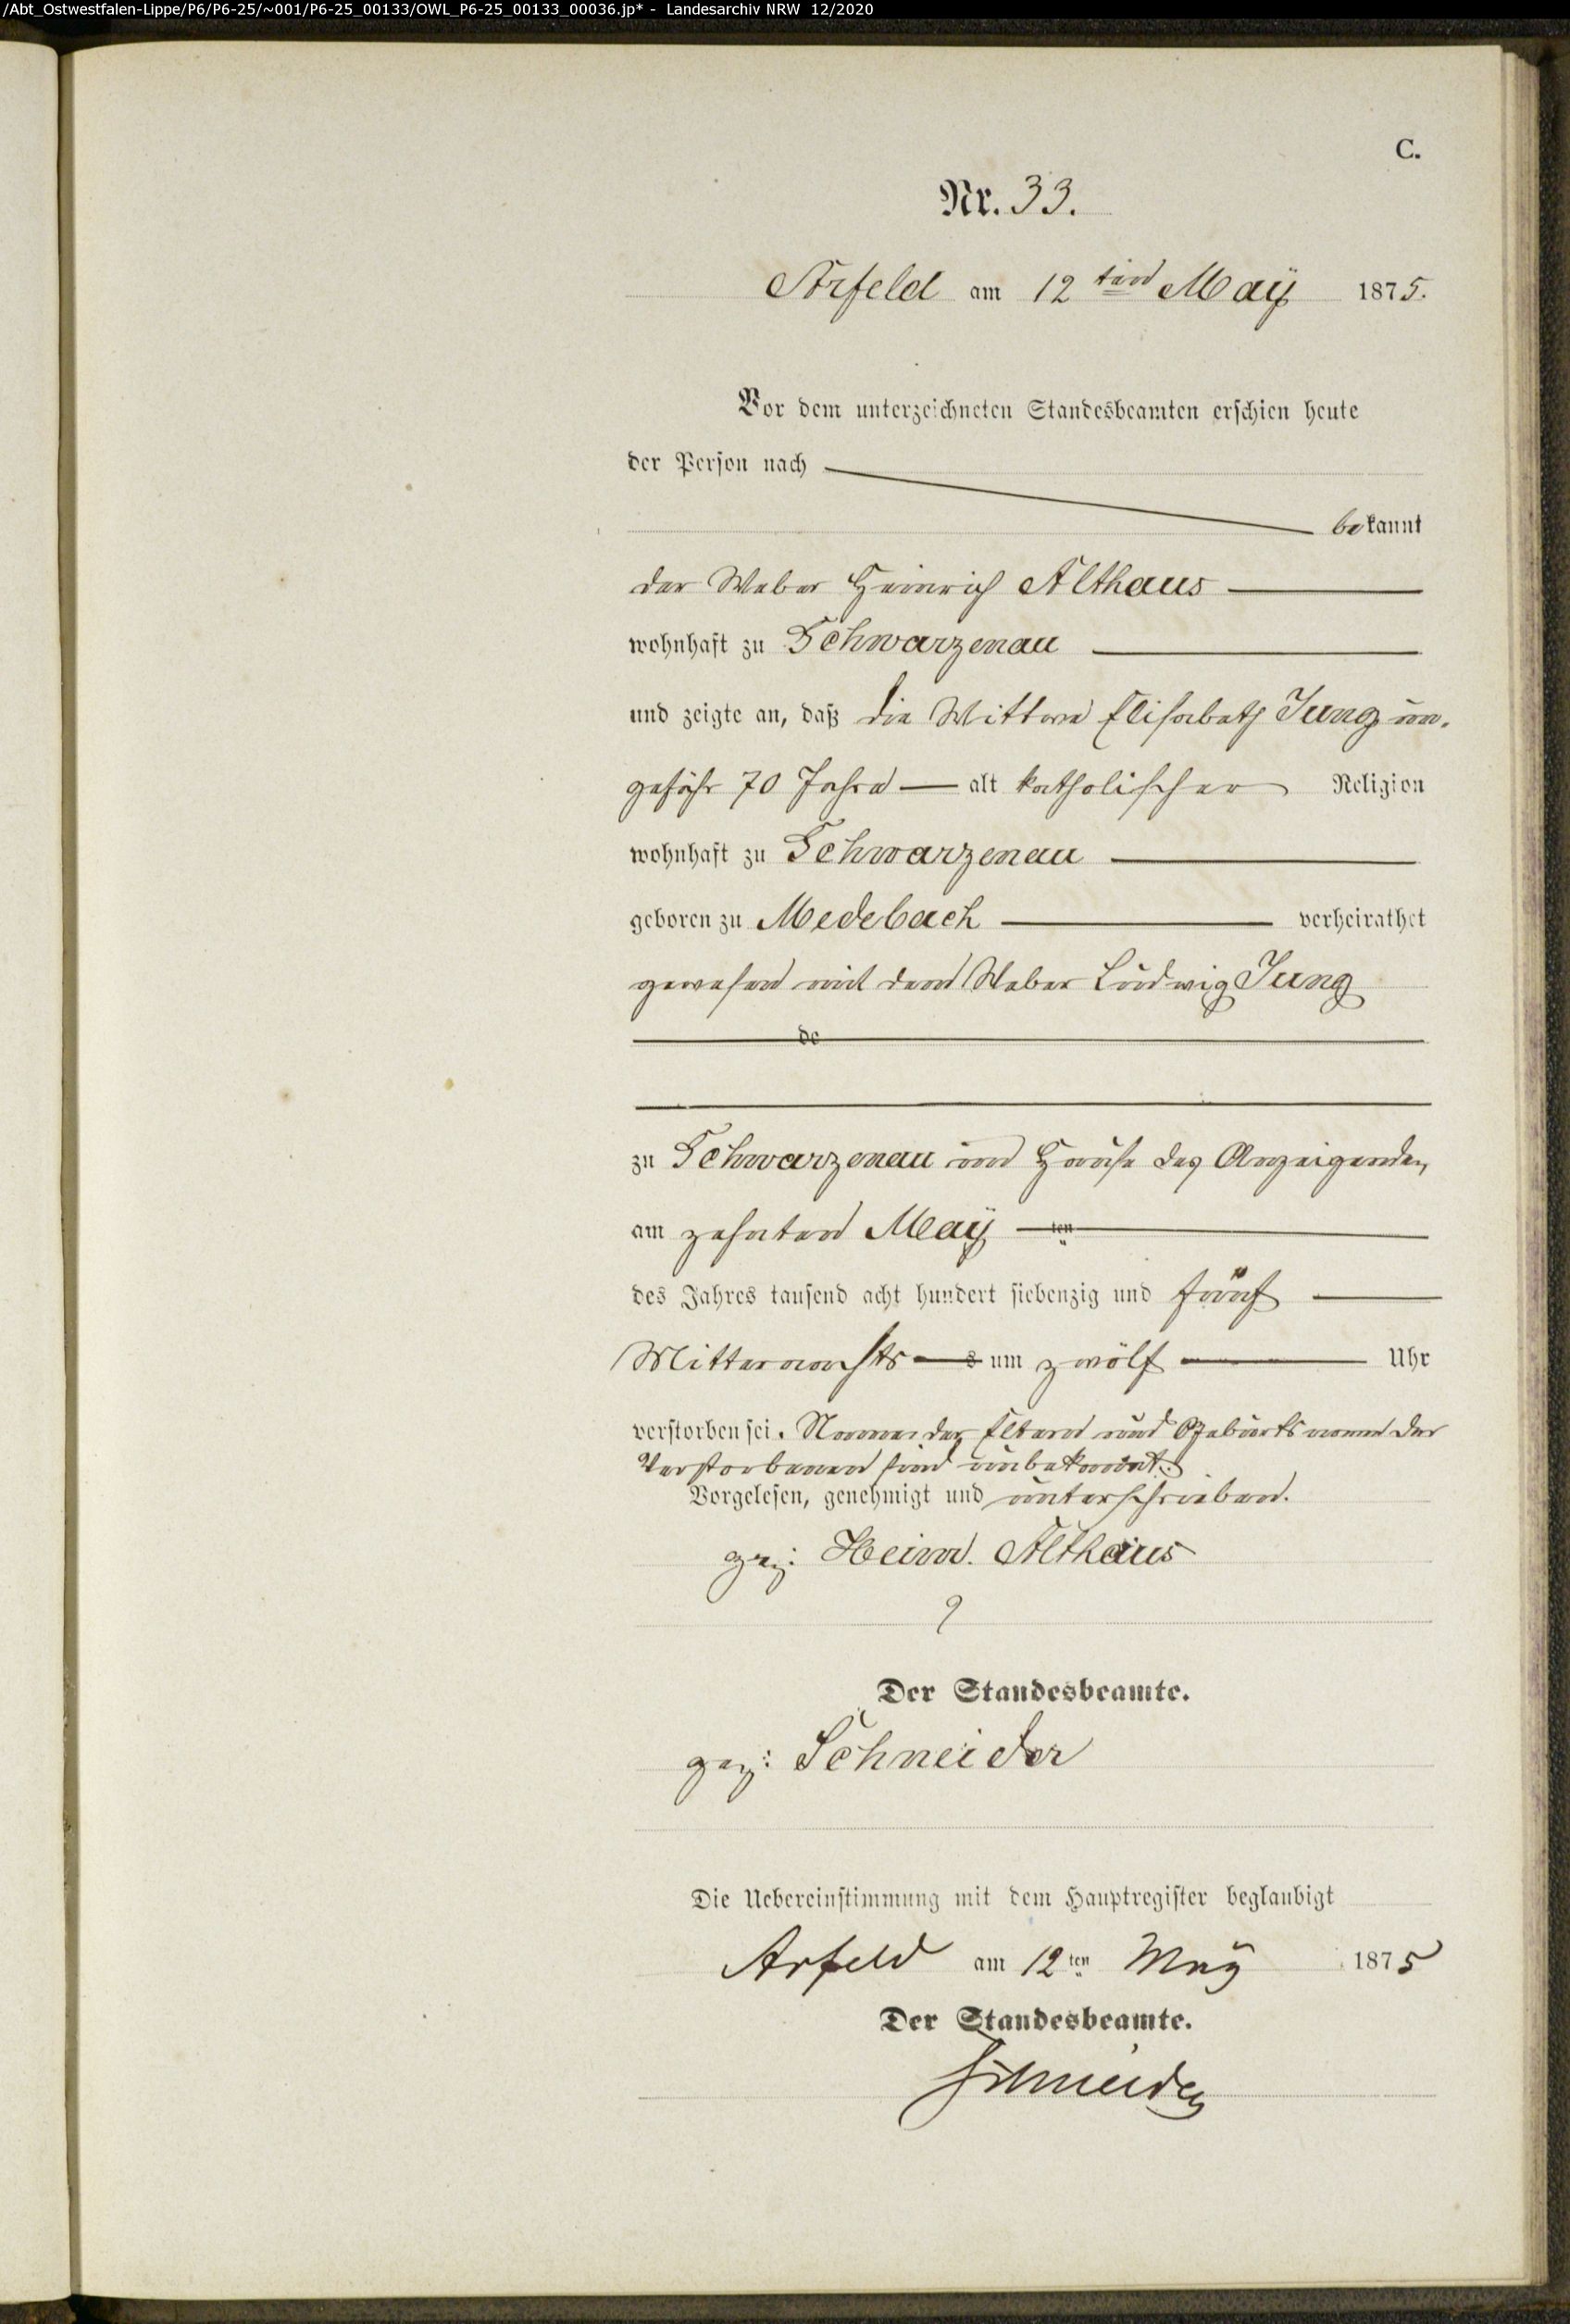 /Abt_Ostwestfalen-Lippe/P6/P6-25/~001/P6-25_00133/OWL_P6-25_00133_00036.jp* - Landesarchiv NRW 12/2020
C.
Nr. 33.
Arfeld am 12 ten May 1875.
Vor dem unterzeichneten Standesbeamten erschien heute
der Person nach
bekannt
der Weber Heinrich Althaus
wohnhaft zu Schwarzenau
und zeigte an, daß die Wittwe Elisabeth Jung un-
gefähr 70 Jahre alt katholischer Religion
wohnhaft zu Schwarzenau
geboren zu Medebach verheirathet
gewesen mit dem Weber Ludwig Jung
de
zu Schwarzenau im Hause des Anzeigenden
am zehnten May ten
des Jahres tausend acht hundert siebenzig und fünf
Mitternachts s um zwölf Uhr
verstorben sei. Namen der Eltern und Geburtsname der
Verstorbenen sind unbekannt.
Vorgelesen, genehmigt und unterschrieben.
gez: Heinr. Althaus
Der Standesbeamte.
gez: Schneider
Die Uebereinstimmung mit dem Hauptregister beglaubigt
Arfeld am 12ten May 1875
Der Standesbeamte.
Schneider